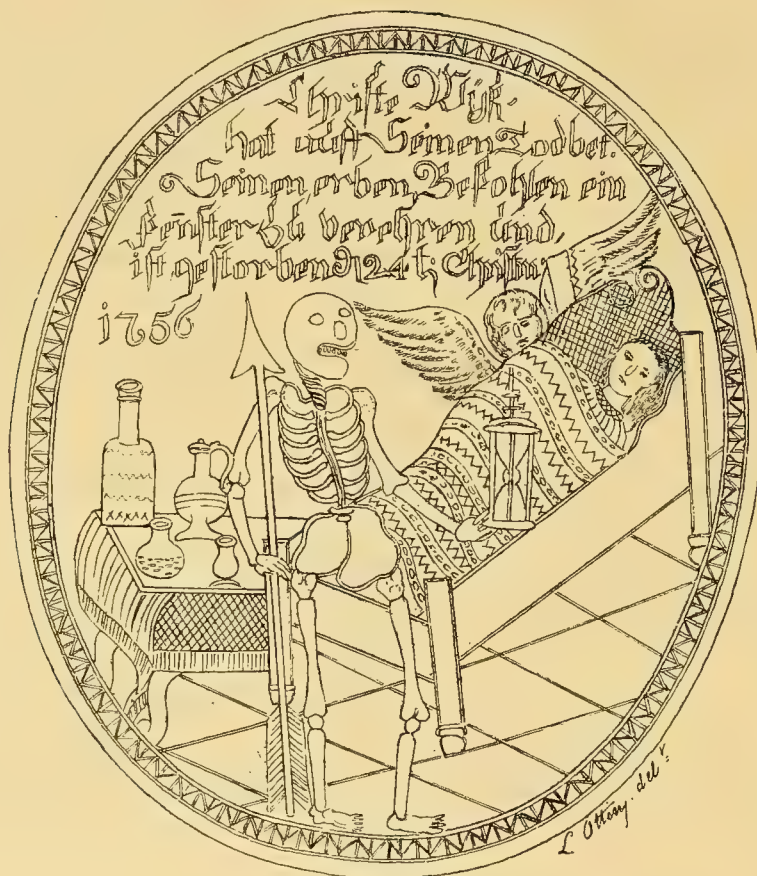 Christe Wijk.
hat auff Seinen Todbet.
Seinen, erben, Befohlen ein
fenster Zu verehren Und,
ist gestorben 24
1756
L Ottin, delt